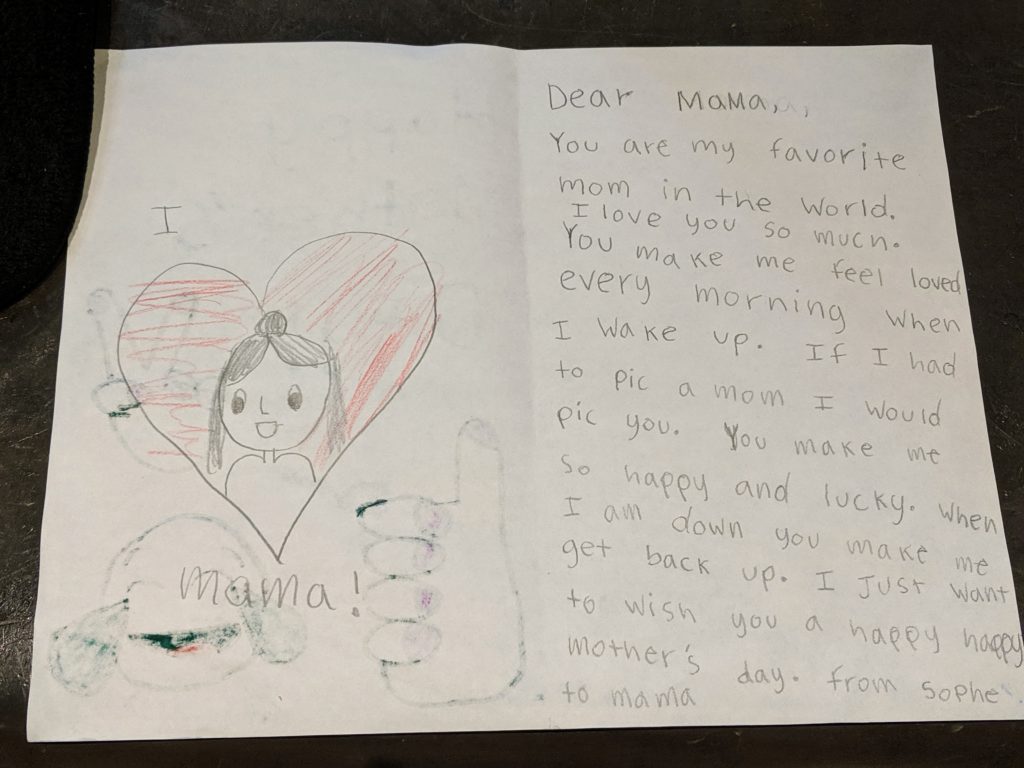 I
mama!
Dear MaMa,,
You are my favorite
mom in the world.
I love you so much.
You make me feel loved
every morning when
I wake up. If I had
to pic a mom I would
pic you. You make me
so happy and lucky. When
I am down you make me
get back up. I Just want
to wish you a happy happy
mother's day. from sophe
to mama